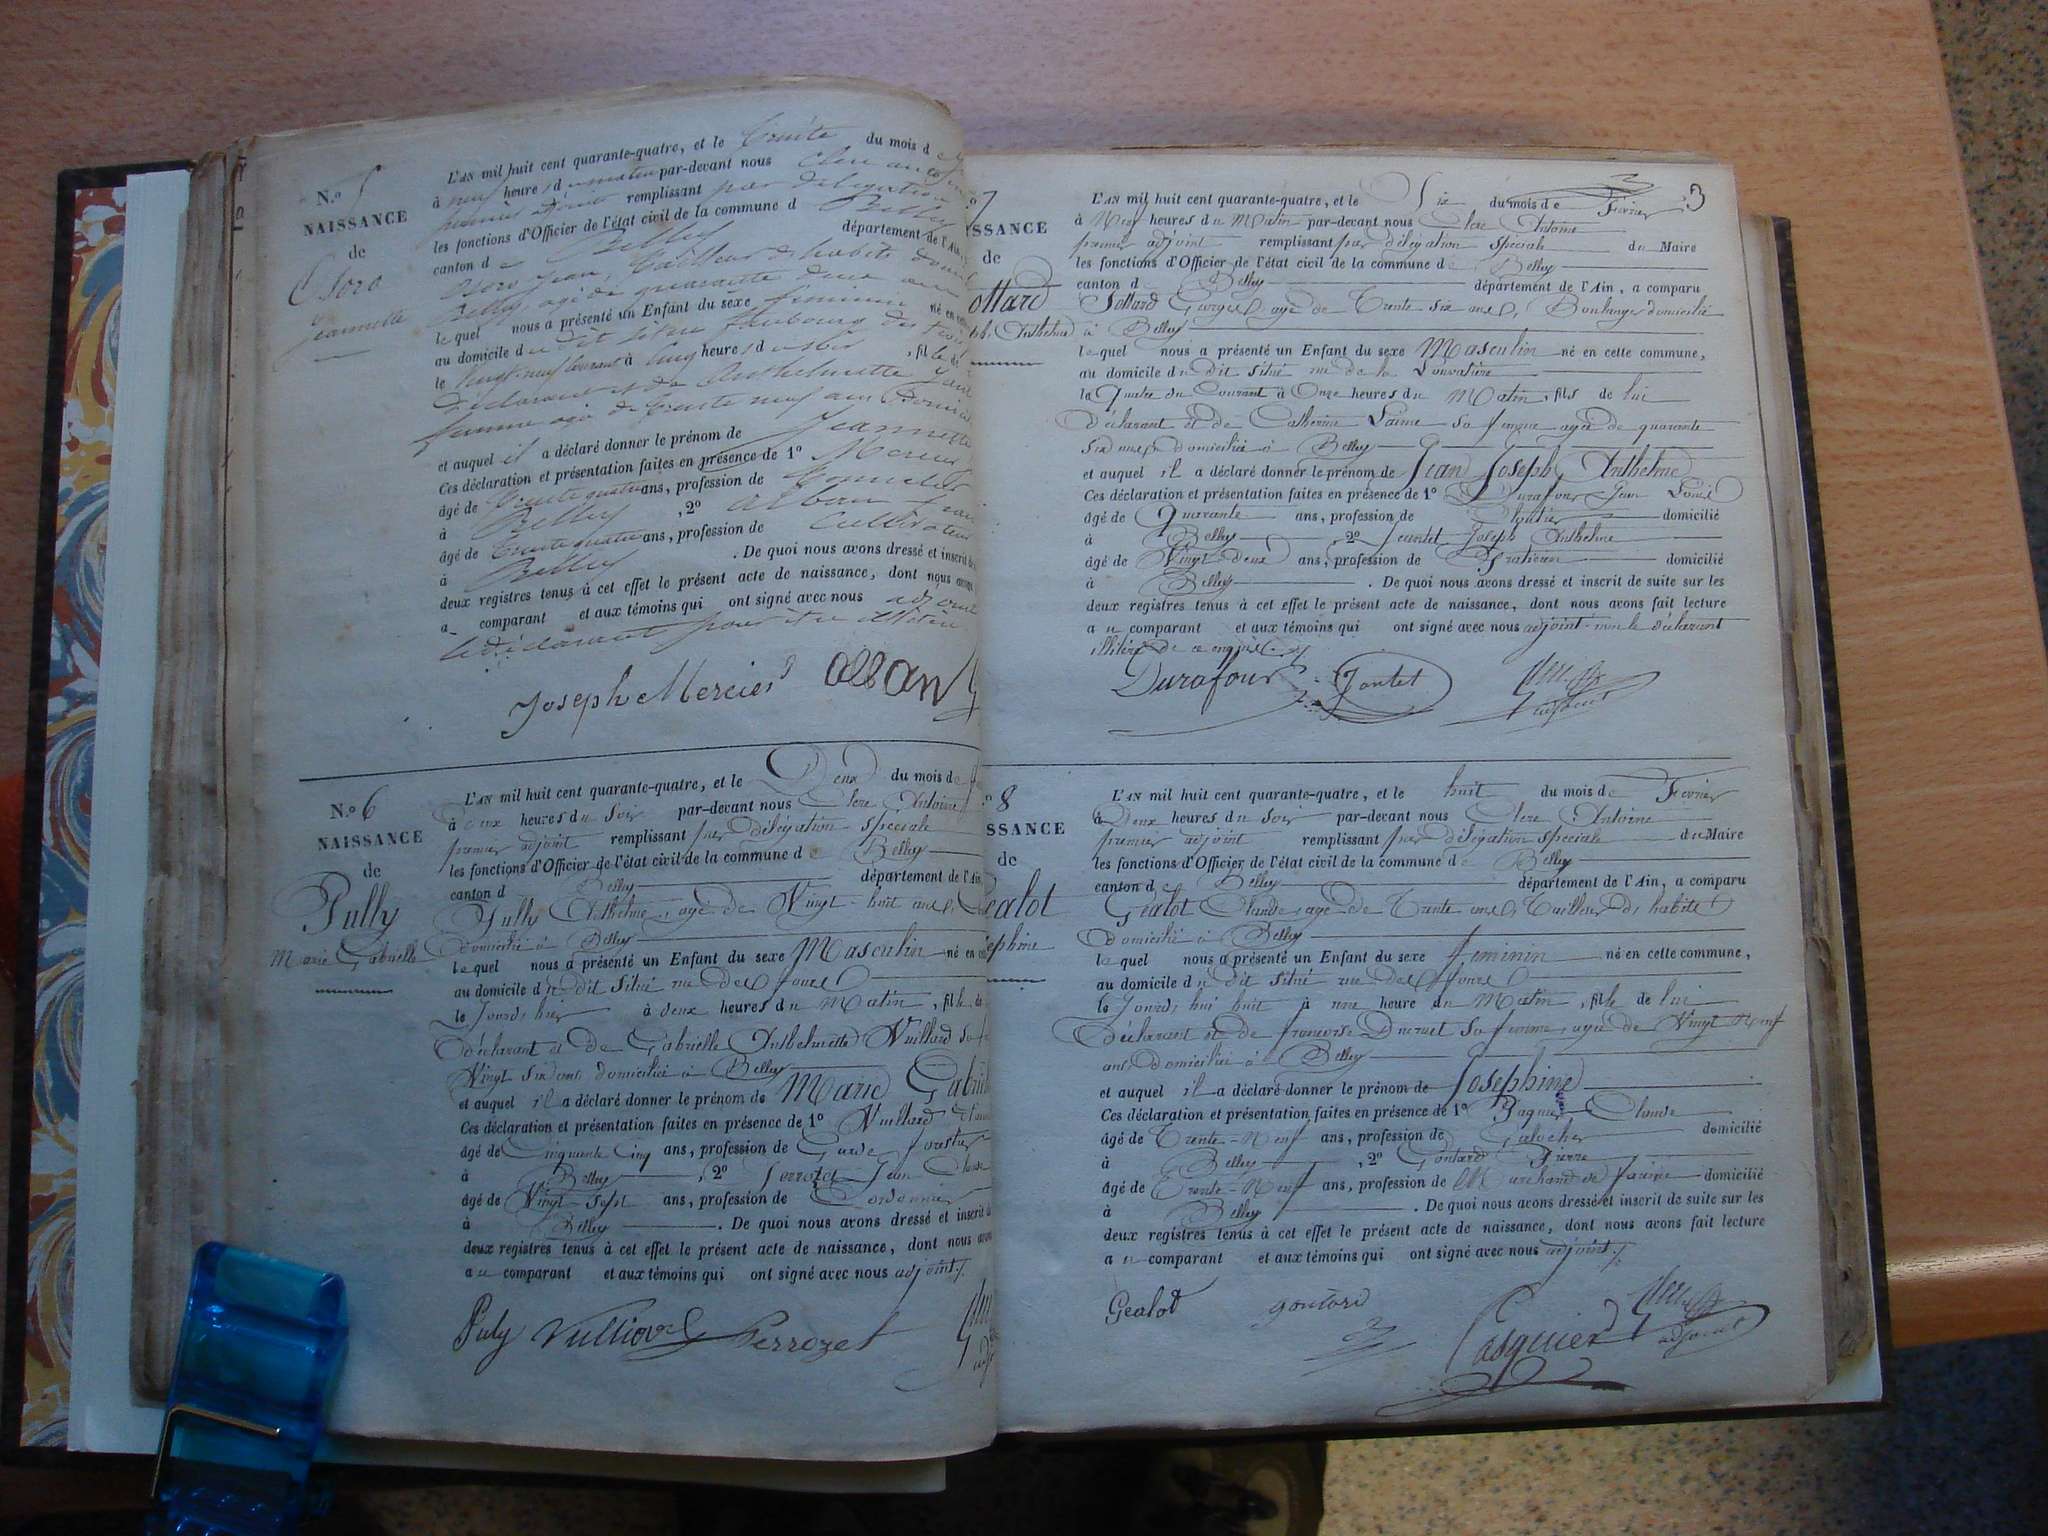 N.o 5
NAISSANCE
de
Jeannette
L'AN mil huit cent quarante-quatre, et le trente du mois d
à neuf heures du matin par-devant nous Clerc
premier adjoint remplissant par délégation
les fonctions d'Officier de l'état civil de la commune d Belley
canton de Belley département de l'Ain
Jean, tailleur d'habits
Belley, agé de quarante deux ans
lequel nous a présenté un Enfant du sexe féminin né en
au domicile du dit situé faubourg des
le vingt-neuf courant à cinq heures du soir, fille de
déclarant et de Anthelmette
femme agée de trente neuf ans
et auquel il a déclaré donner le prénom de Jeannette
Ces déclaration et présentation faites en présence de 1o Mercier
âgé de trente quatre ans, profession de
à Belley, 2o alban
âgé de trente quatre ans, profession de cultivateur
à Belley. De quoi nous avons dressé et inscrit de
deux registres tenus à cet effet le présent acte de naissance, dont nous avons
a comparant et aux témoins qui ont signé avec nous adjoint
le déclarant pour être illétéré
Joseph Mercier alban
N.o 6
NAISSANCE
de
Pully
Marie Gabrielle
L'AN mil huit cent quarante-quatre, et le Deux du mois de
à deux heures du Soir par-devant nous Clerc Antoine
premier adjoint remplissant par délégation spéciale
les fonctions d'Officier de l'état civil de la commune de Belley
canton d Belley département de l'Ain
Pully Anthelme, agé de Vingt-huit ans,
domicilié à Belley
lequel nous a présenté un Enfant du sexe Masculin né en
au domicile du dit situé rue des fours
le Jourd, hier à deux heures du Matin, fille de
déclarant et de Gabrielle Anthelmette Vuillard sa
Vingt six ans domiciliée à Belley
et auquel il a déclaré donner le prénom de Marie Gabrielle
Ces déclaration et présentation faites en présence de 1o Vuillard
âgé de Cinquante Cinq ans, profession de Garde forestier
à Belley, 2o Perrozet Jean Claude
âgé de Vingt-Sept ans, profession de Cordonnier
à Belley. De quoi nous avons dressé et inscrit de
deux registres tenus à cet effet le présent acte de naissance, dont nous avons
au comparant et aux témoins qui ont signé avec nous adjoint
Puly Perrozet
o 7
SSANCE
de
ottard
Anthelme
3
L'AN mil huit cent quarante-quatre, et le Six du mois de Fevrier
à Neuf heures du Matin par-devant nous Clerc Antoine
premier adjoint remplissant par délégation speciale du Maire
les fonctions d'Officier de l'état civil de la commune de Belley
canton de Belley département de l'Ain, a comparu
Sottard Georges, agé de Trente six ans, Boulanger domicilié
à Belley
lequel nous a présenté un Enfant du sexe Masculin né en cette commune,
au domicile du dit situé rue de la Louvatière
le Quatre du Courant à Onze heures du Matin, fils de lui
déclarant et de Catherine sa femme agée de quarante
six ans domiciliée à Belley
et auquel il a déclaré donner le prénom de Jean Joseph Anthelme
Ces déclaration et présentation faites en présence de 1o Durafour Jean Louis
âgé de Quarante ans, profession de Cloutier domicilié
à Belley, 2o Jeantet Joseph Anthelme
âgé de Vingt deux ans, profession de Praticien domicilié
à Belley. De quoi nous avons dressé et inscrit de suite sur les
deux registres tenus à cet effet le présent acte de naissance, dont nous avons fait lecture
au comparant et aux témoins qui ont signé avec nous adjoint. non le déclarant
illitéré de ce enquis
Durafour Jantet adjoint
o 8
SSANCE
de
Gealot
Josephine
L'AN mil huit cent quarante-quatre, et le huit du mois de Fevrier
à Deux heures du Soir par-devant nous Clerc Antoine
premier adjoint remplissant par délégation speciale du Maire
les fonctions d'Officier de l'état civil de la commune de Belley
canton d Belley département de l'Ain, a comparu
Gealot Claude, agé de Trente ans, Tailleur d, habits
domicilié à Belley
lequel nous a présenté un Enfant du sexe feminin né en cette commune,
au domicile du dit situé rue des fours
le Jourd, hui huit à une heure du Matin, fille de lui
déclarant et de françoise Ducruet sa femme, agée de Vingt Neuf
ans domiciliée à Belley
et auquel il a déclaré donner le prénom de Josephine
Ces déclaration et présentation faites en présence de 1o Paquier Claude
âgé de Trente-Neuf ans, profession de Galocher domicilié
à Belley, 2o Gontard Pierre
âgé de Trente-Neuf ans, profession de Marchand de farine domicilié
à Belley. De quoi nous avons dressé et inscrit de suite sur les
deux registres tenus à cet effet le présent acte de naissance, dont nous avons fait lecture
au comparant et aux témoins qui ont signé avec nous adjoint
Gealot gontard Pasquier adjoint